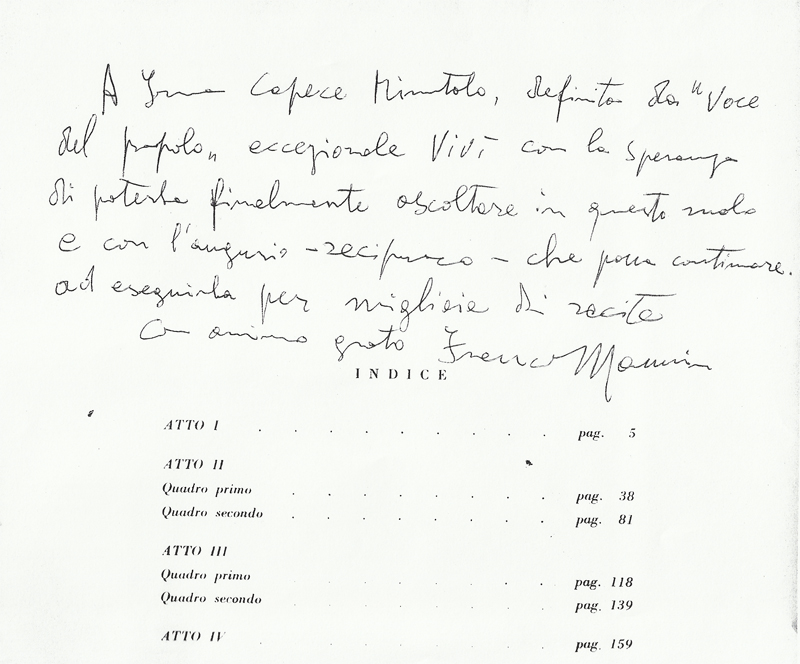 A Irma Capece Minutolo, definita da "Voce
del popolo" eccezionale Vivì con la speranza
di poterla finalmente ascoltare in questo ruolo
e con l'augurio - reciproco - che possa continuare
ad eseguirla per migliaia di recite
Con animo grato Franco Mannino
INDICE
ATTO I . . . . . . . . . pag. 5
ATTO II
Quadro primo . . . . . . . . pag. 38
Quadro secondo . . . . . . . . pag. 81
ATTO III
Quadro primo . . . . . . . . pag. 118
Quadro secondo . . . . . . . . pag. 139
ATTO IV . . . . . . . . . pag. 159